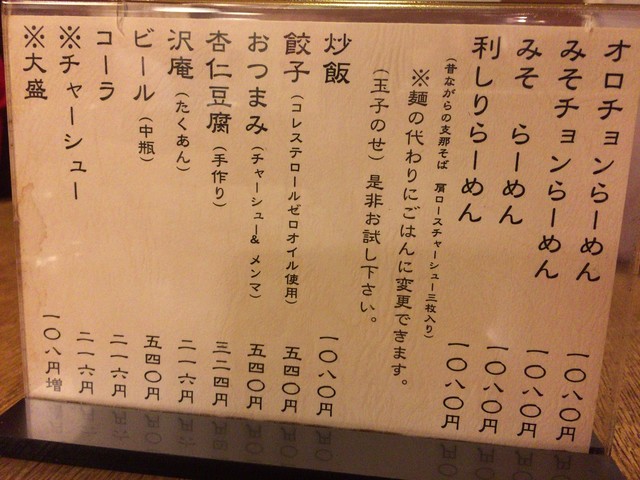 オロチョンらーめん 一〇八〇円
みそチョンらーめん 一〇八〇円
みそ らーめん 一〇八〇円
利しりらーめん 一〇八〇円
(昔ながらの支那そば 肩ロースチャーシュー三枚入り)
※麺の代わりにごはんに変更できます。
(玉子のせ)是非お試し下さい。
炒飯 一〇八〇円
餃子(コレステロールゼロオイル使用) 五四〇円
おつまみ(チャーシュー& メンマ) 五四〇円
杏仁豆腐(手作り) 三二四円
沢庵(たくあん) 二一六円
ビール(中瓶) 五四〇円
コーラ 二一六円
※チャーシュー 二一六円
※大盛 一〇八円増